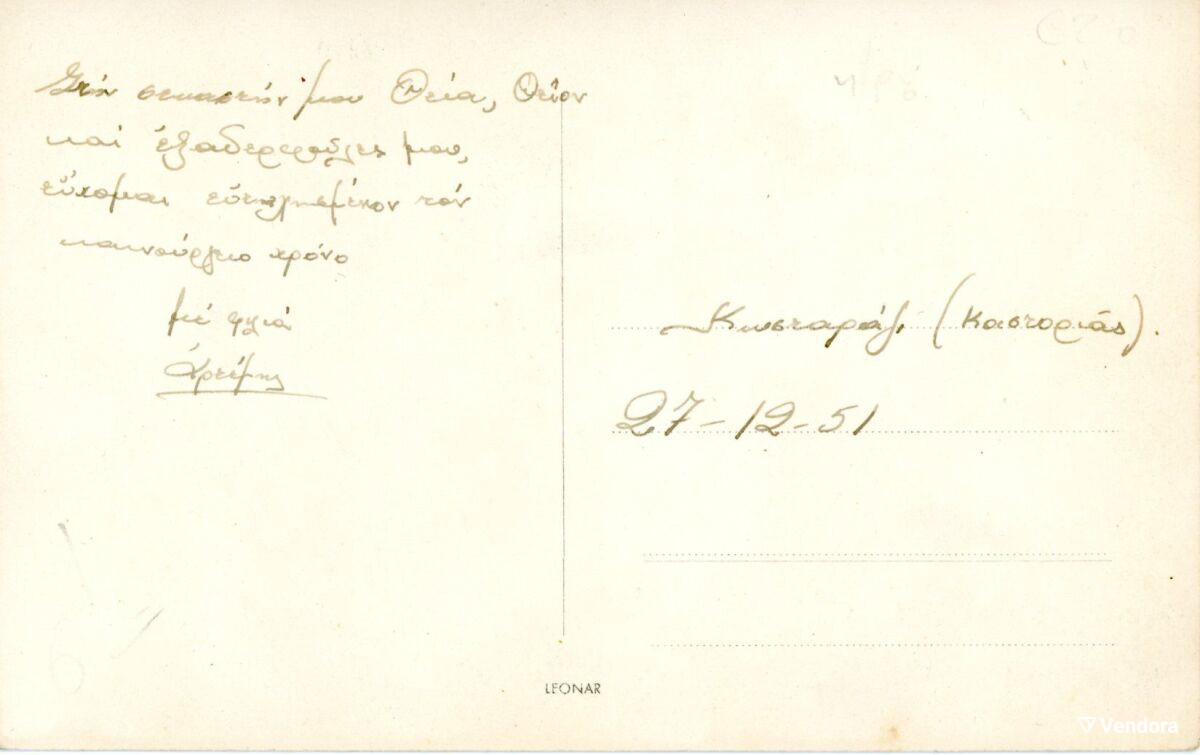 Στήν σεμαστήν μου Θεία, Θεῖον
καί ἐξαδερφοῦλες μου,
εὔχομαι εὐτυχισμένον τόν
καινούργιο χρόνο
μέ φιλιά
Ἀρτέμης
Κωσταράζι (Καστοριάς).
27-12-51
LEONAR
Vendora